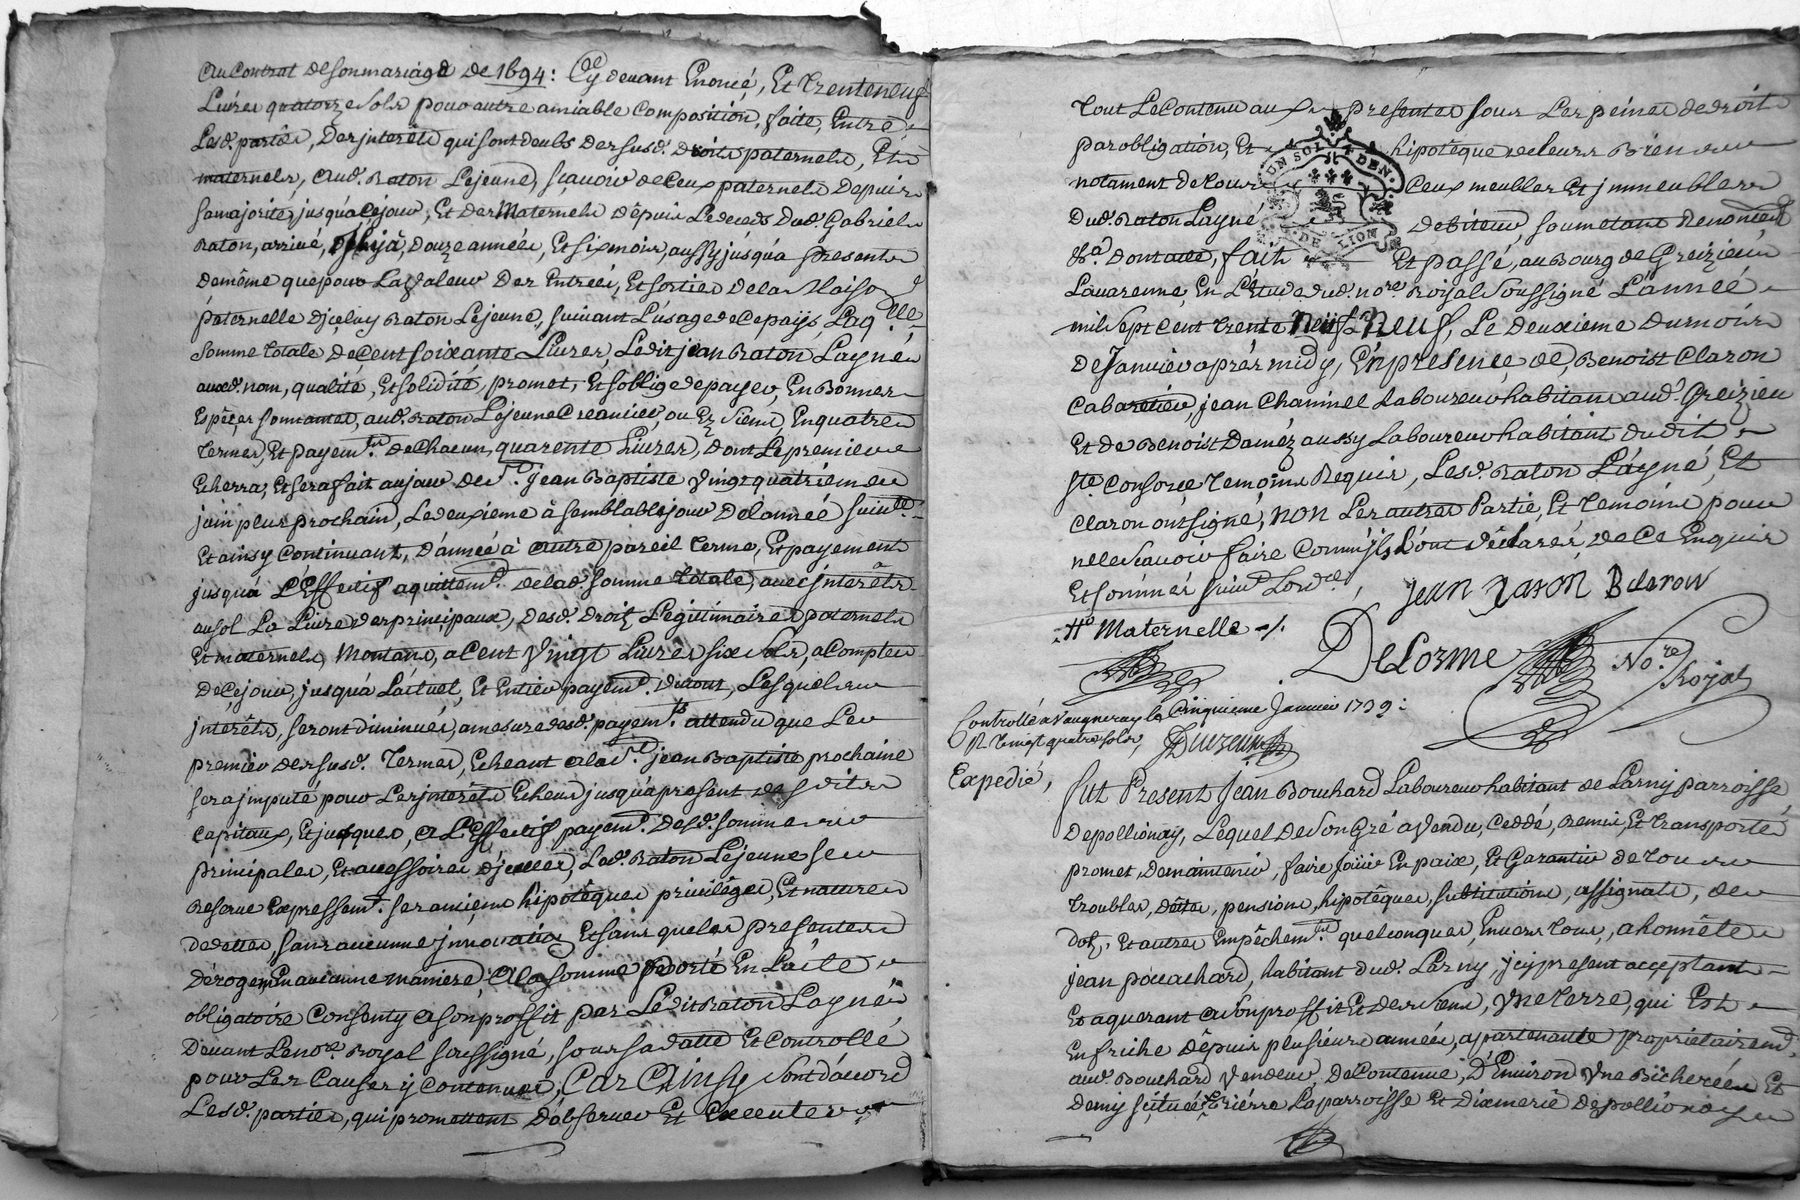 au Contrat de son mariage de 1694: Cy devant Enoncé, Et trente neuf
Livres quatorze sols pour autre amiable Composition, faite, Entre
Lesd. parties, Des jnterêts qui sont deubs des susd. Droits paternels, Et
maternels, aud. Raton Lejeune, sçavoir de Ceux paternels Depuis
sa majorité, jusqu'a Cejour, Et des Maternels Depuis Le deceds dud. Gabriel
Raton, arrivé, Déja, Douze années, Et six mois, aussy jusqu'a present
De même que pour La Valeur Des Entrées, Et sorties De la Maison
paternelle Djceluy Raton Lejeune, suivant L'usage de Ce païs, Laq.lle
somme totale De Cent soixante Livres, Ledit jean Raton Layné
auxd. nom, qualité, Et solidité, promet, Et s'oblige de payer, En Bonnes
Espêces sonnantes, aud. Raton Lejeune Creancier, ou Ez siens, En quatre
termes, Et payem.ts De Chacun quarente Livres, Dont Le premier
Echerra, Et sera fait au jour de S.t jean Baptiste Vingt quatriême
juin plus prochain, Le deuxieme à semblable jour De L'année suiv.te
Et ainsy Continuant, D'année à autre pareil terme, Et payement
jusqu'a L'Effectif aquittem.t De lad. somme totale, avec jnterêts
au sol La Livre des principaux, Desd. Droits Légitimaires paternels
Et maternels, Montans, a Cent Vingt Livres six sols, a Compter
De Cejour, jusqu'a L'actuel, Et Entier payem.t Duront, Lesquels
jnterêts, seront diminués, a mesure desd. payem.ts attendu que Le
premier des susd. Termes, Echeant a la S.t jean Baptiste prochaine
sera jmputé pour Les jnterêts Echeus jusqu'a present des dits
Capitaux, Et jusques, a L'Effectif payem.t Desd. sommes
principales, Et accessoires D'jcelles, Led. Raton Lejeune se
Reserve Expressem.t ses anciens hipotêques privilêges, Et nature
de dettes, sans aucunne jnnovation Et sans que les presentes
Dérogent En aucunne maniere, a La somme porté En L'acte
obligatoire Consenty a son proffit par Ledit Raton Layné,
Devant Le no.re Royal soussigné, sous sa datte Et Controllé
pour Les Causes y Contenues, Car Ainsy sont d'acord
Lesd. parties, qui promettent D'observer Et Executer
tout Le Contenu aux presentes sous Les peines de droit
par obligation, Et hipotêque de leurs Biens
notament de tous Ceux meubles Et jmmeubles
Dud. Raton Layné Debiteur, soumetant Renonçant
&a. Dont acte, fait Et passé, au Bourg de Greizieu
UN SOL 4 DEN.
G. DE LION
Lavarenne, En L'Etude dud. no.re Royal soussigné L'année
mil sept Cent trente Neuf Neuf, Le deuxieme du mois
De Janvier aprés midy, En presence de, Benoist Claron
Cabaretier, jean Chaninel Laboureur habitans aud. Greizieu
Et de Benoist Daméz aussy Laboureur habitant dudit
ste. Consorce temoins Requis, Lesd. Raton L'ayné, Et
Claron ont signé, non Les autres Partie, Et temoins pour
ne le sçavoir faire Comm'jls L'ont déclarés, de Ce Enquis
Et sommés suiv.t L'ord.ce,
jean Raton B claron
Maternelle
Delorme No.re Royal
Controllé a Vaugneray le Cinquieme Janvier 1739:
R. vingt quatre sols,
Expedié,
fut Present Jean Bouchard Laboureur habitant de Larny parroisse
De pollionay, Lequel de son Gré a vendu, Ceddé, Remis, Et transporté
promet, De maintenir, faire Joüir En paix, Et Garantir de tous
troubles, dettes, pensions, hipotêques, substitutions, assignats, de
dot, Et autres Empêchem.ts quelconques, Envers tous, a honnête
jean pouachard, habitant dud. Larny, jcy present acceptant
Et aquerant a son proffit Et des siens, Vne terre, qui Est
En friche depuis plusieurs années, apartenante proprietairem.t
aud. Bouchard Vendeur De Contenue, D'Environ Vne Bicherée Et
Demy scituée Larny, La parroisse Et Dixmerie De pollionay